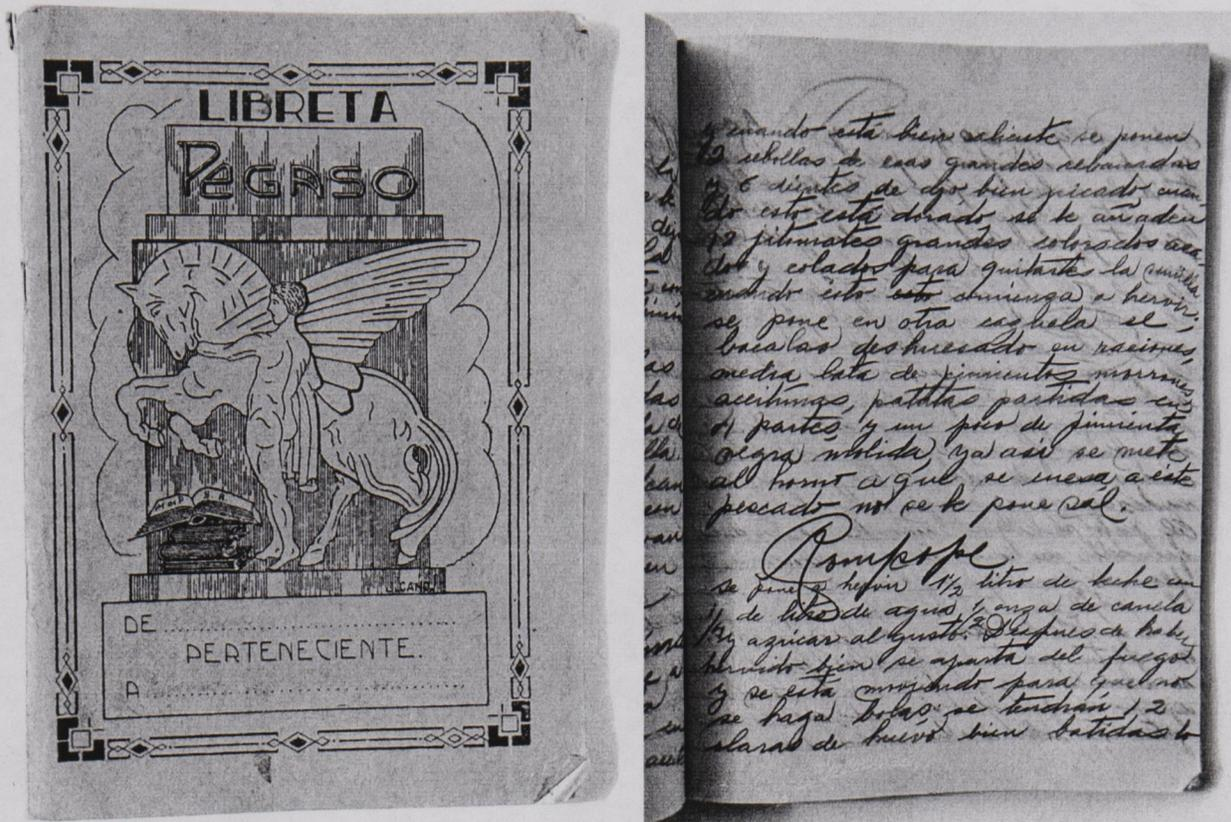 LIBRETA
PEGASO
DE
PERTENECIENTE.
A
y cuando está bien caliente se ponen
12 cebollas de esas grandes rebanadas
y 6 dientes de ajo bien picado, cuan
do esto está dorado se le añaden
12 jitomates grandes colorados asa-
dos y colados para quitarles la semilla
cuando esto comienza a hervir,
se pone en otra cazuela el
bacalao deshuesado en raciones,
media lata de pimientos morrones
aceitunas, patatas partidas en
4 partes, y un poco de pimienta
negra molida, ya así se mete
al horno a que se cuesa, a éste
pescado no se le pone sal.
Rompope
se pone a hervir 1 1/2 litro de leche con
1/2 de litro de agua, 1/2 onza de canela
y azúcar al gusto. Despues de haber
hervido bien se aparta del fuego
y se está moviendo para que no
se haga bolas, se tendrán 12
claras de huevo bien batidas